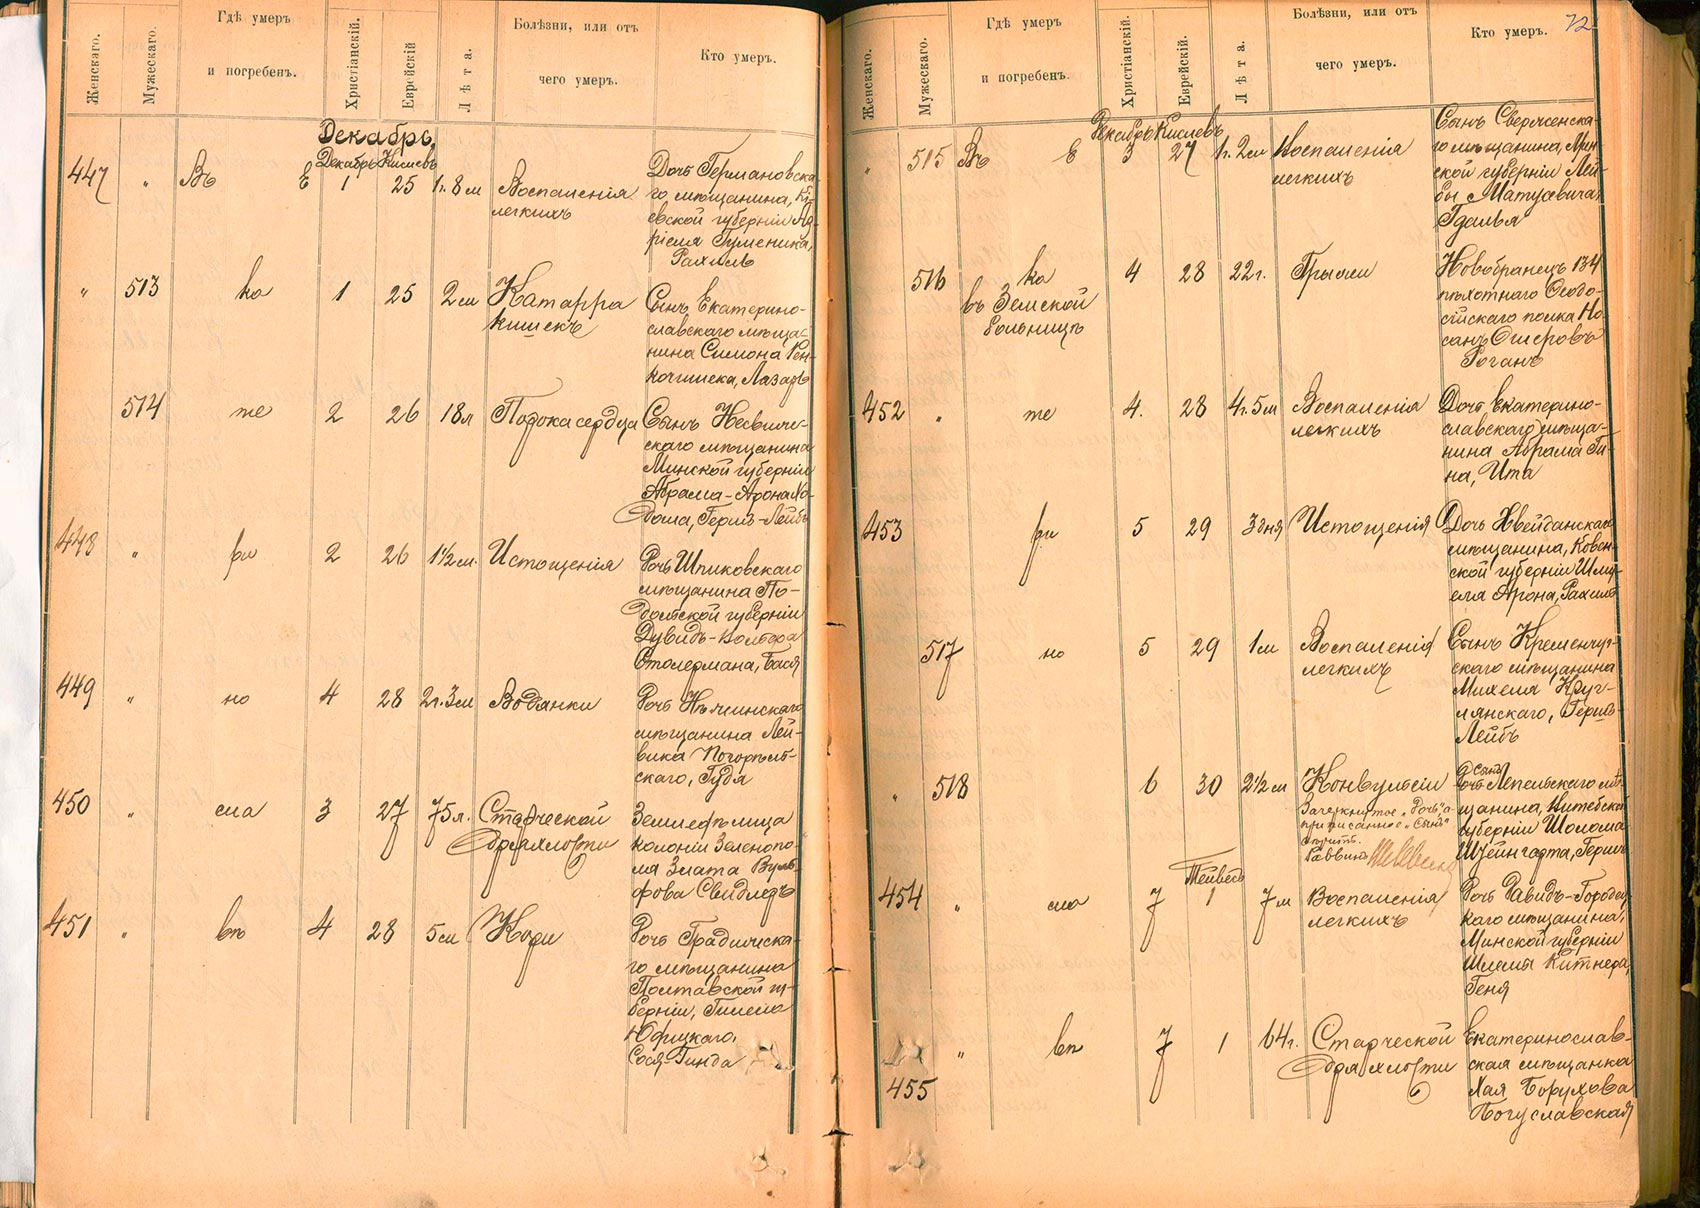 Женскаго.
Мужескаго.
Гдѣ умеръ
и погребенъ.
Христіанскій.
Еврейскій
Лѣта.
Болѣзни, или отъ
чего умеръ.
Кто умеръ.
Декабрь.
Декабрь Кислевъ
447 " Въ Е 1 25 1г. 8 м Воспаленія
легкихъ
Дочь Германовска-
го мѣщанина, Кі-
евской губерніи Ад-
ріеля Гуменика,
Рахиль
" 513 ка 1 25 2 м Катарра
кишекъ
Сынъ Екатерино-
славскаго мѣща-
нина Симона
Лазарь
514 те 2 26 18л Порока сердца
Сынъ Несвиж-
скаго мѣщанина
Минской губерніи
Абрама-Арона Хо-
дома, Герш-Лейбъ
448 " ри 2 26 1½ м. Истощенія
Дочь Шпиковскаго
мѣщанина По-
дольской губерніи
Дувидъ-Вольфа
Столермана, Бася
449 " но 4 28 2г. 3м Водянки
Дочь Нѣжинскаго
мѣщанина Лей-
вика Погорѣль-
скаго, Гудя
450 " сла 3 27 75 л. Старческой
дряхлости
Землевѣлица
колоніи Зеленопо-
ля Злата Вуль-
фова Свидлеръ
451 " вѣ 4 28 5 м Кори
Дочь Градижска-
го мѣщанина
Полтавской гу-
берніи, Гилеля
Юфицкаго,
Сося-Гинда
72
Женскаго.
Мужескаго.
Гдѣ умеръ
и погребенъ.
Христіанскій.
Еврейскій.
Лѣта.
Болѣзни, или отъ
чего умеръ.
Кто умеръ.
Декабрь Кислевъ
" 515 Въ Е 3 27 1г. 2 м Воспаленія
легкихъ
Сынъ Сверженска-
го мѣщанина, Мин-
ской губерніи Лей-
бы Матусевича,
Гдалья
516 ка 4 28 22 г. Грыжи
въ Земской
больницѣ
Новобранецъ 134
пѣхотнаго Ѳеодо-
сійскаго полка Но-
санъ Ошеровъ
Роганъ
452 " те 4. 28 4г. 5 м Воспаленія
легкихъ
Дочь Екатерино-
славскаго мѣща-
нина Абрама Ги-
на, Ита
453 ри 5 29 3 дня Истощенія
Дочь Хвейданскаго
мѣщанина, Ковен-
ской губерніи Шму-
еля Арона, Рахиль
517 но 5 29 1 м Воспаленія
легкихъ
Сынъ Кременчуг-
скаго мѣщанина
Михеля Круг-
лянскаго, Гершъ-
Лейбъ
" 518 6 30 2½ м Конвульсіи
Зачеркнутое „Дочь", а
приписанное „Сынъ"
Раввинъ
Сынъ
Дочь Лепельскаго мѣ-
щанина, Витебской
губерніи Шолома
Вейнгарта, Гершъ
Тейвесъ
454 " сла 7 1 7 м Воспаленія
легкихъ
Дочь Давидъ-Городец-
каго мѣщанина,
Минской губерніи
Шлемы Китнера,
Геня
455 " вѣ 7 1 64 г. Старческой
дряхлости
Екатеринослав-
ская мѣщанка
Хая Борухова
Богуславская